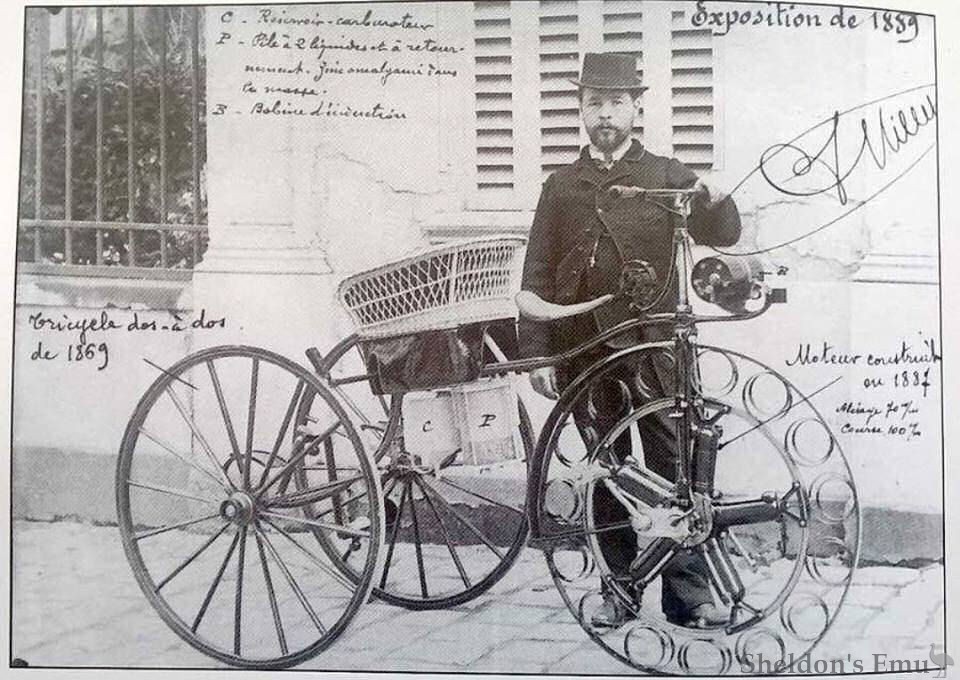 C - Réservoir-carburateur
P - Pile à 2 liquides et à retour-
nement. Zinc amalgamé dans
la masse.
B - Bobine d'induction
Exposition de 1889
F Millet
Tricycle dos-à dos
de 1869
Moteur construit
en 1887
Alésage 70 m/m
Course 100 m/m
C
P
B
Sheldon's Emu